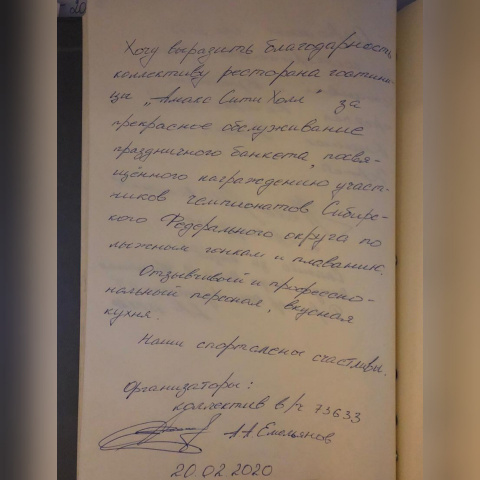 20
Хочу выразить благодарность
коллективу ресторана гостини-
цы „Амакс Сити Холл" за
прекрасное обслуживание
праздничного банкета, посвя-
щённого награждению участ-
ников чемпионатов Сибирс-
кого Федерального округа по
лыжным гонкам и плаванию.
Отзывчивый и профессио-
нальный персонал, вкусная
кухня.
Наши спортсмены счастливы.
Организаторы:
коллектив в/ч 73633
А А Емельянов
20.02.2020